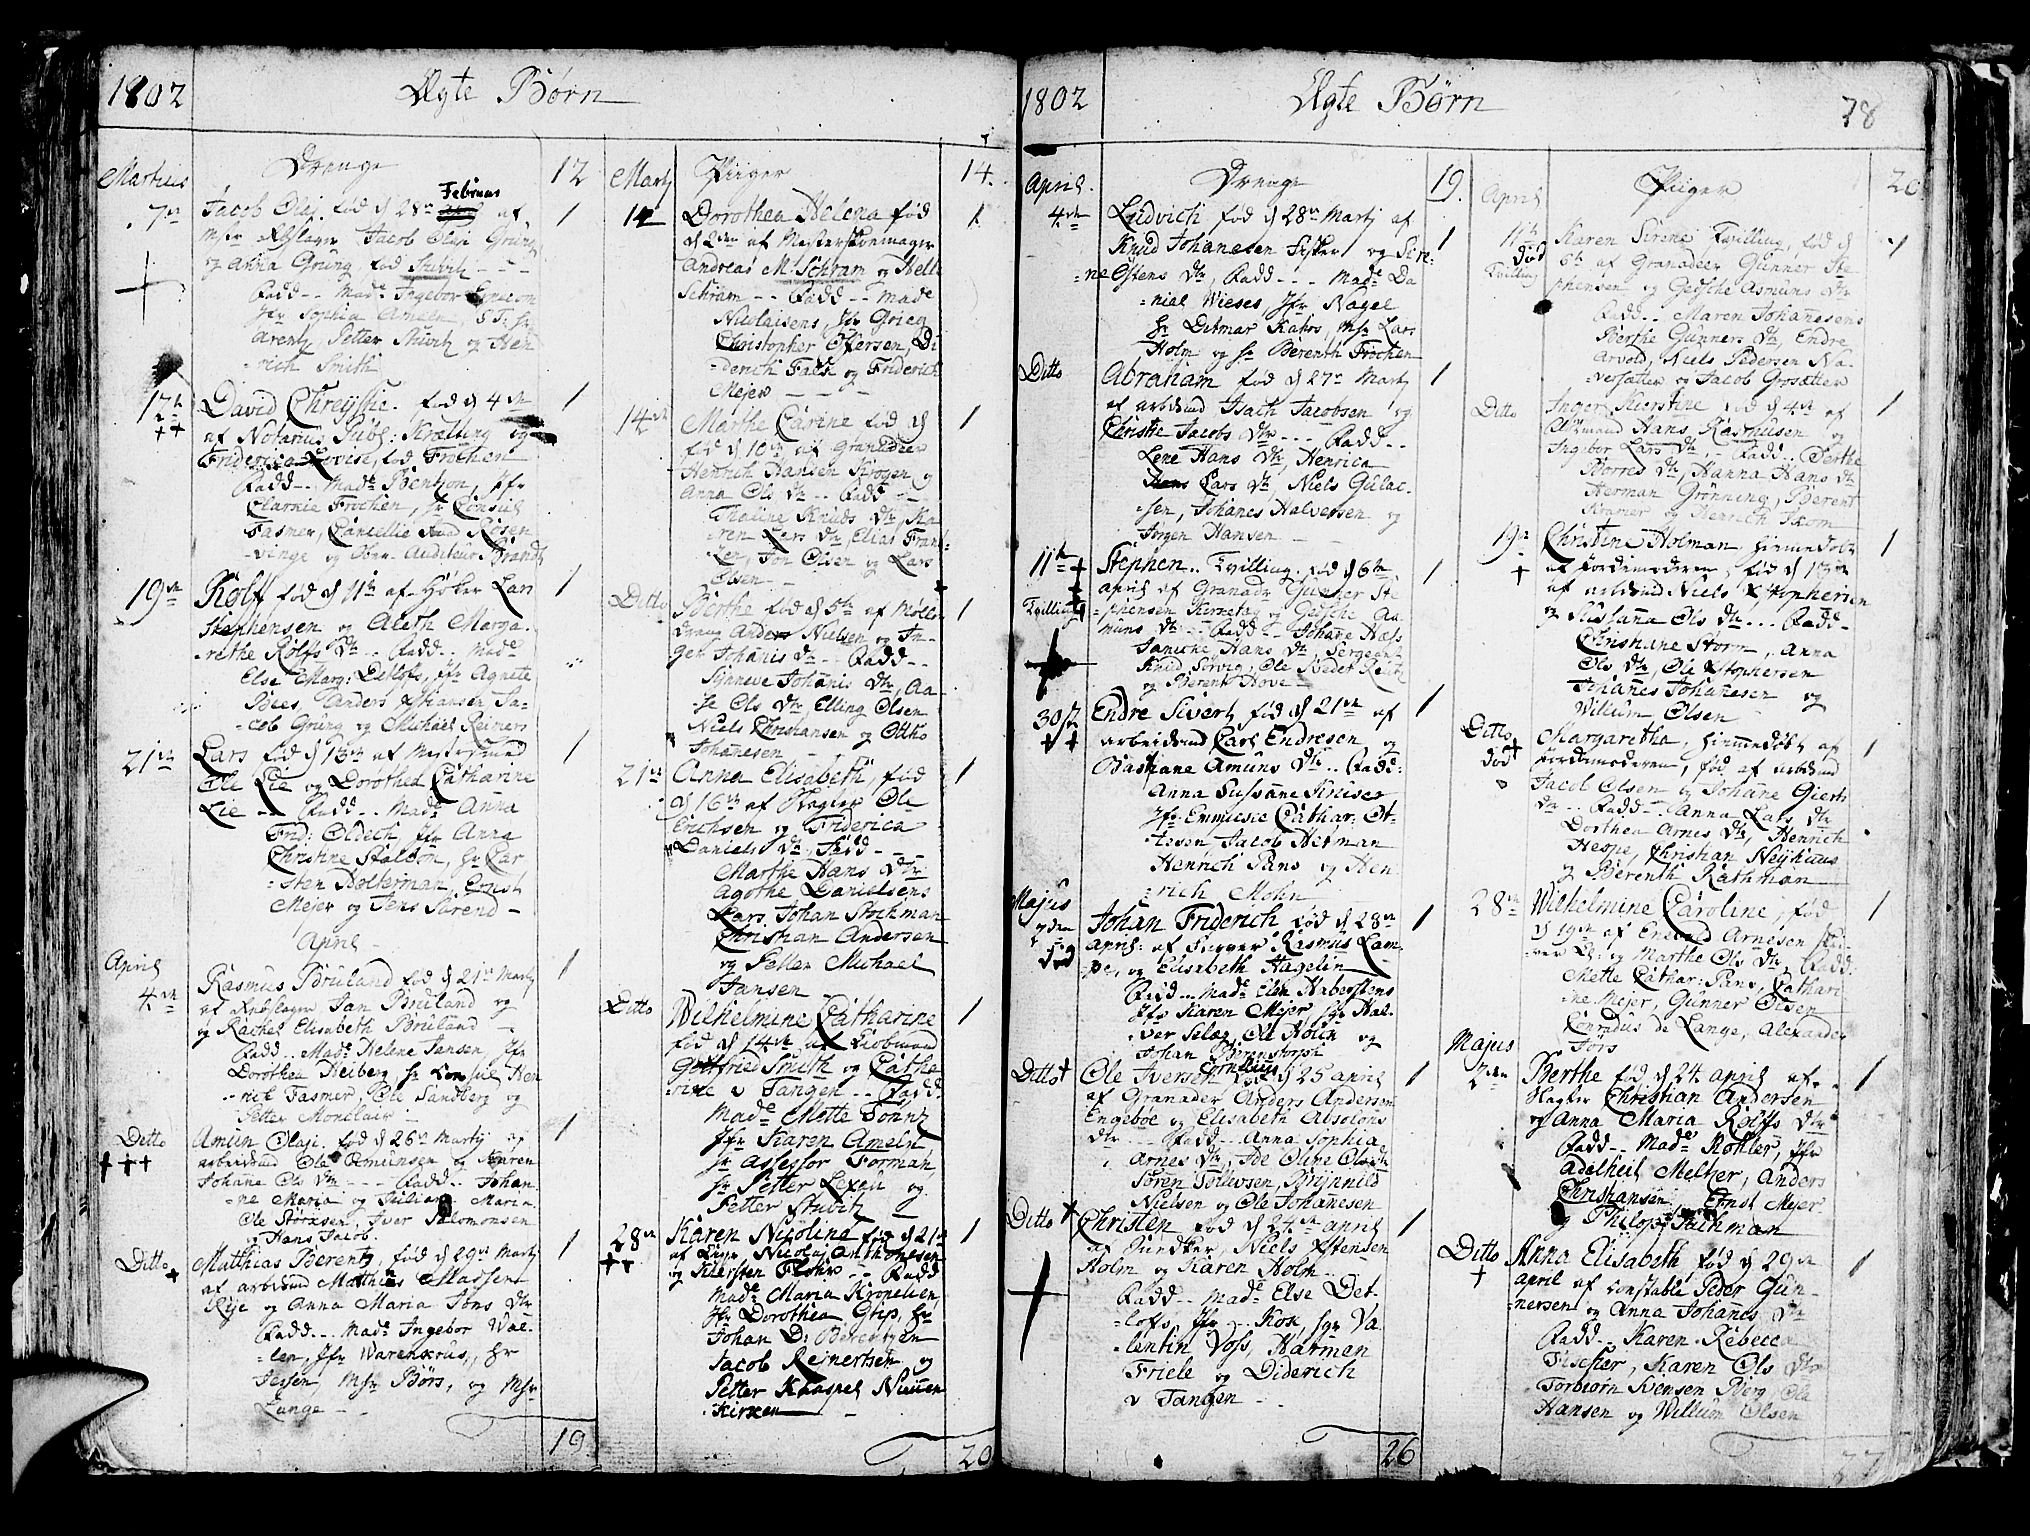 1802
Ægte Børn
Martius
Drenge
12
7de
Jacob Olaj. fød d 28de Februar af
Msr Jacob Olaj Grüng
og Anna Grüng, fød Stubitz
Fadd-- Made Ingebor
Jfr Sophia Ameln, S.T. hr
Arentz Petter Stubitz og Hen
rich Smith
1
17de
David Chreystie. fød d 4de
af Notarius Publ: Krælling og
Friderica Lovise, fød Frochen
Fadd-- Made Bentzon, Jfr
Clarkie Frochen, hr Consul
Fasmer, Cancellie Raad Rosen
vinge og Auditeur Brandt
1
19de
Rolf fød d 11te af Høker Lars
Stephensen og Aleth Marga
rethe Rolfs Dtr -- Fadd-- Made
Else Marg: Detlofs, Jfr Agnete
Bees, Anders Xstiansen Ja-
cob Grüng og Michael Reiners
1
21de
Lars fød d 13de af
Ole Lie og Dorothea Catharine
Lie -- Fadd-- Made Anna
Frid: Oldech Jfr Anna
Christine Stalbon, hr Car
sten Bolterman, Ernst
Mejer og Jens Sürend
1
April
April
4de
Rasmus Brüland fød d 21de Martj
af Jan Brüland og
og Rachel Elisabeth Brüland
Fadd-- Made Helene Jansen, Jfr
Dorothea Heiberg, hr Consul Hen
rich Fasmer, Ole Sandberg og
Petter Monclair
1
Ditto
Amun Olaj. fød d 26de Martj af
arbeidsmd Ole Amunsen og Karen
Johane Ols Dtr --- Fadd-- Johan
ne Maria og Juliana Maria
Ole Størksen, Iver Salomonsen
og Hans Jacob
1
Ditto
Matthias Berentz, fød d 29de Martj
af arbeidsmd Matthias Massen
Rye og Anna Maria Jons Dtr
Fadd-- Made Ingebor Wal
len, Jfr Warenskius, hr
Jessen, Msr Børs, og Msr
Lange
1
19
Martj
Piiger
14.
14
Dorothea Helena fød
d 2den af Mesterskomager
Andreas M: Schram og Helle
Schram -- Fadd-- Made
Nicolaisens, Jfr Grieg
Christopher Ifersen, Di
derich Falch og Friderich
Mejer
1
14de
Marthe Carine fød d
fød d 10de af Granadeer
Hendrich Hansen Sirogen og
Anna Ols Dtr -- Fadd--
Thaline Knuds Dtr, Ka
ren Lars Dtr, Elias Fran
zen, Jon Olsen og Lars
Olsen
1
Ditto
Berthe fød d 5te af Møller
dreng Anders Nielsen og In
ger Johanis Dtr -- Fadd--
Synneve Johanis Dtr, Aa
se Ols Dtr Elling Olsen
Niels Christiansen og Otto
Johanesen
1
21de
Anna Elisabeth, fød
d 16de af Slagter Ole
Erichsen og Friderica
Daniels Dtr, Fadd--
Marthe Hans Dtr
Agothe Danielsens
Lars Johan Stockman
Christian Andersen
og Petter Michael
Jansen
1
Ditto
Wilhelmine Catharine
fød d 14de af Kiøbmand
Gottfried Smith og Catha
rine v Tangen -- Fadd--
Made Mette Tonnt
Jfr Karen Ameln
hr Assessor Forman,
hr Petter Lexau og
Petter Stubitz
1
28de
Karen Nicoline fød d 21de
af Nicolaj Anthonesen
og Kiersten Flohrs -- Fadd
Made Maria Kronelien,
Jfr Dorothea Grip, hr
Johan D: Berentzen
Jacob Reinertsen og
Petter Knaspel Nimen
Kirken
1
20
1802
Ægte Børn
78
April
Drenge
19.
4de
Ludvich fød d 28de Martj af
Knud Johanesen Fisker og Sire
ne Østens Dtr, Fadd--- Made Da
nial Wieses, Jfr Nagel
hr Ditmar Kahrs, Msr Lars
Holm og hr Berenth Frochen
1
Ditto
Abraham fød d 27de Martj
af arbeidsmd Isach Jacobsen og
Christie Jacobs Dtr --- Fadd--
Lene Hans Dtr, Henrica
Lars Dtr, Niels Gulac
sen, Johanes Halversen og
Jørgen Hansen
1
11te
Tvilling
Stephen.. Tvilling. fød d 6te
april af Granadr Gunner Ste
phensen Kirretag og Gedsche Aa
muns Dtr --- Fadd-- Johane Hass
Janiche Hans Dtr, Sergeant
Knud Sorvig, Ole Reder Reitz
og Berent Hove
1
30de
Endre Sivert fød d 21de af
arbeidsmd Carl Endresen og
Bastiane Amuns Dtr -- Fadd:
Anna Sussane Sinises
Jfr Emmicie Cathar: Ot
tesen, Jacob Herman
Henrich Pans og Hen
rich Mohn
1
Majus
2den
død
Johan Friderich fød d 28de
april af Rasmus Lam
pe, og Elisabeth Hagelin
Fadd-- Made Elen Haberstens
Jfr Karen Mejer hr Hal
vor Selær, Ole Hoich og
Johan Berenstorph
1
Ditto
Ole Iversen Cornelius fød d 25 april
af Granadeer Anders Andersen
Engeboe og Elisabeth Absolons
Dtr --- Fadd-- Anna Sophia
Arnes Dtr, Ide Oline Ols Dtr
Sören Tollevsen, Brynnild
Nielsen og Ole Johanesen
1
Ditto
Christen fød d 24de april
af Niels Xstensen
Holm og Karen Holm
Fadd-- Made Else Det
lofs, Jfr -- Kox, hr Va
lentin Voss, Harmen
Friele og Diderich
v Tangen
1
26
April
Piiger
20
11te
død
Tvilling
Karen Sirene Tvilling, fød d
6te af Granadeer Gunner Ste
phensen og Gedsche Asmuns Dtr
Fadd-- Maren Johanesens
Berthe Gunners Dtr, Endre
Arvold, Niels Pedersen Na
versætter og Jacob Grosætter
1
Ditto
Inger Kierstine fød d 4de af
Hans Rasmusen og
Ingebor Lars Dtr -- Fadd-- Berthe
Børres Dtr, Hanna Hans Dtr
Herman Grönning, Berent
Kramer og Henrich Thom
1
19de
Christine Holman, hiemmedøbt
af Jordemoderen, fød d 13de
af arbeidsmd Niels Xstophersen
og Susanna Ols Dtr --- Fadd-
Christiane Storm, Anna
Ols Dtr, Ole Xstophersen
Johanes Johanesen og
Willum Olsen
1
Ditto
død
Margaretha, hiemmedøbt af
Jordemoderen, fød af arbeidsmd
Jacob Olsen og Johane Gierts
Dtr -- Fadd-- Anna Lars Dtr
Dorthea Arnes Dtr, Henrich
Hesse, Christian Neyhuus
og Berenth Rathman
1
28de
Wilhelmine Caroline, fød
d 19de af Enevold Arnesen
og Marthe Ols Dtr -- Fadd:
Mette Cathar: Pans, Cathari
ne Mejer, Gunner Olsen
Conradus de Lange, Alexander
Børs
1
Majus
2den
Berthe fød d 24 april af
Slagter Christian Andersen
og Anna Maria Rolfs Dtr
Fadd-- Made Kohler, Jfr
Adelheit Meltzer, Anders
Christiansen, Ernst Mejer
og Philop Pathman
1
Ditto
Anna Elisabeth fød d 29de
april af Constable Peder Gun
nersen og Anna Johanes Dtr
Fadd-- Karen Rebecca
Fischer, Karen Ols Dtr
Torbiørn Svensen Berg, Ole
Hansen og Willum Olsen
1
27